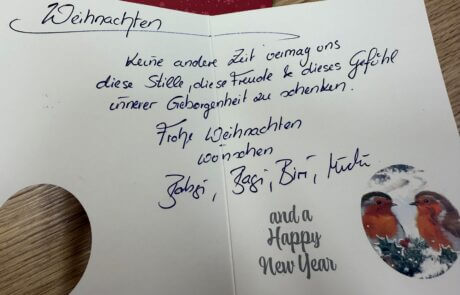 Weihnachten
Keine andere Zeit vermag uns
diese Stille, diese Freude & dieses Gefühl
innerer Geborgenheit zu schenken.
Frohe Weihnachten
wünschen
and a
Happy
New Year